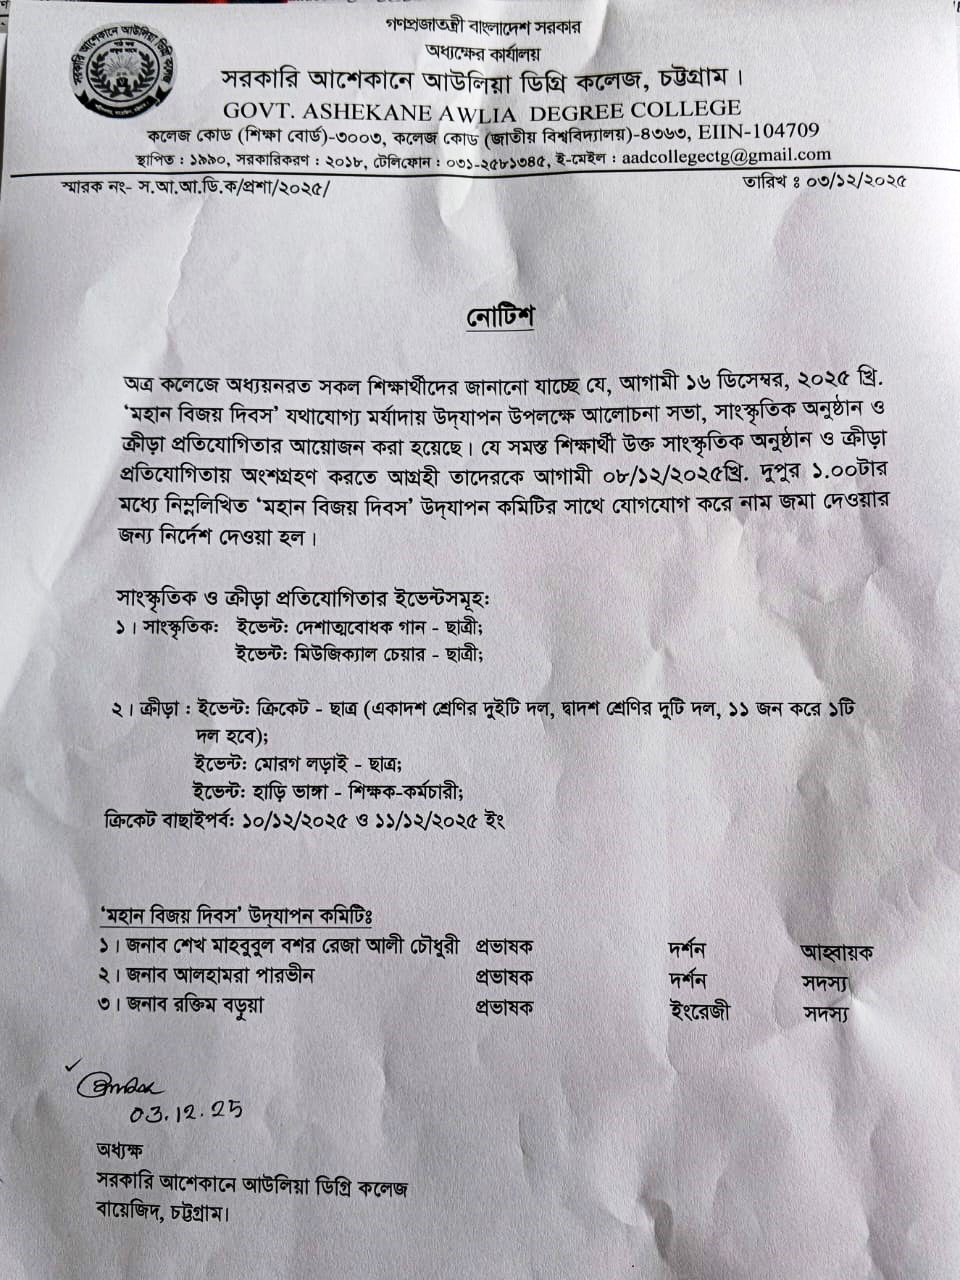 গণপ্রজাতন্ত্রী বাংলাদেশ সরকার
অধ্যক্ষের কার্যালয়
সরকারি আশেকানে আউলিয়া ডিগ্রি কলেজ, চট্টগ্রাম।
GOVT. ASHEKANE AWLIA DEGREE COLLEGE
কলেজ কোড (শিক্ষা বোর্ড)-৩০০৩, কলেজ কোড (জাতীয় বিশ্ববিদ্যালয়)-৪৩৬৩, EIIN-104709
স্থাপিত : ১৯৯০, সরকারিকরণ : ২০১৮, টেলিফোন : ০৩১-২৫৮১৩৪৫, ই-মেইল : aadcollegectg@gmail.com
স্মারক নং- স.আ.আ.ডি.ক/প্রশা/২০২৫/ তারিখ ঃ ০৩/১২/২০২৫
নোটিশ
অত্র কলেজে অধ্যয়নরত সকল শিক্ষার্থীদের জানানো যাচ্ছে যে, আগামী ১৬ ডিসেম্বর, ২০২৫ খ্রি.
‘মহান বিজয় দিবস’ যথাযোগ্য মর্যাদায় উদ্‌যাপন উপলক্ষে আলোচনা সভা, সাংস্কৃতিক অনুষ্ঠান ও
ক্রীড়া প্রতিযোগিতার আয়োজন করা হয়েছে। যে সমস্ত শিক্ষার্থী উক্ত সাংস্কৃতিক অনুষ্ঠান ও ক্রীড়া
প্রতিযোগিতায় অংশগ্রহণ করতে আগ্রহী তাদেরকে আগামী ০৮/১২/২০২৫খ্রি. দুপুর ১.০০টার
মধ্যে নিম্নলিখিত ‘মহান বিজয় দিবস’ উদ্‌যাপন কমিটির সাথে যোগযোগ করে নাম জমা দেওয়ার
জন্য নির্দেশ দেওয়া হল।
সাংস্কৃতিক ও ক্রীড়া প্রতিযোগিতার ইভেন্টসমূহ:
১। সাংস্কৃতিক: ইভেন্ট: দেশাত্মবোধক গান - ছাত্রী;
ইভেন্ট: মিউজিক্যাল চেয়ার - ছাত্রী;
২। ক্রীড়া : ইভেন্ট: ক্রিকেট - ছাত্র (একাদশ শ্রেণির দুইটি দল, দ্বাদশ শ্রেণির দুটি দল, ১১ জন করে ১টি
দল হবে);
ইভেন্ট: মোরগ লড়াই - ছাত্র;
ইভেন্ট: হাড়ি ভাঙ্গা - শিক্ষক-কর্মচারী;
ক্রিকেট বাছাইপর্ব: ১০/১২/২০২৫ ও ১১/১২/২০২৫ ইং
‘মহান বিজয় দিবস’ উদ্‌যাপন কমিটিঃ
১। জনাব শেখ মাহবুবুল বশর রেজা আলী চৌধুরী প্রভাষক দর্শন আহ্বায়ক
২। জনাব আলহামরা পারভীন প্রভাষক দর্শন সদস্য
৩। জনাব রক্তিম বড়ুয়া প্রভাষক ইংরেজী সদস্য
03.12.25
অধ্যক্ষ
সরকারি আশেকানে আউলিয়া ডিগ্রি কলেজ
বায়েজিদ, চট্টগ্রাম।